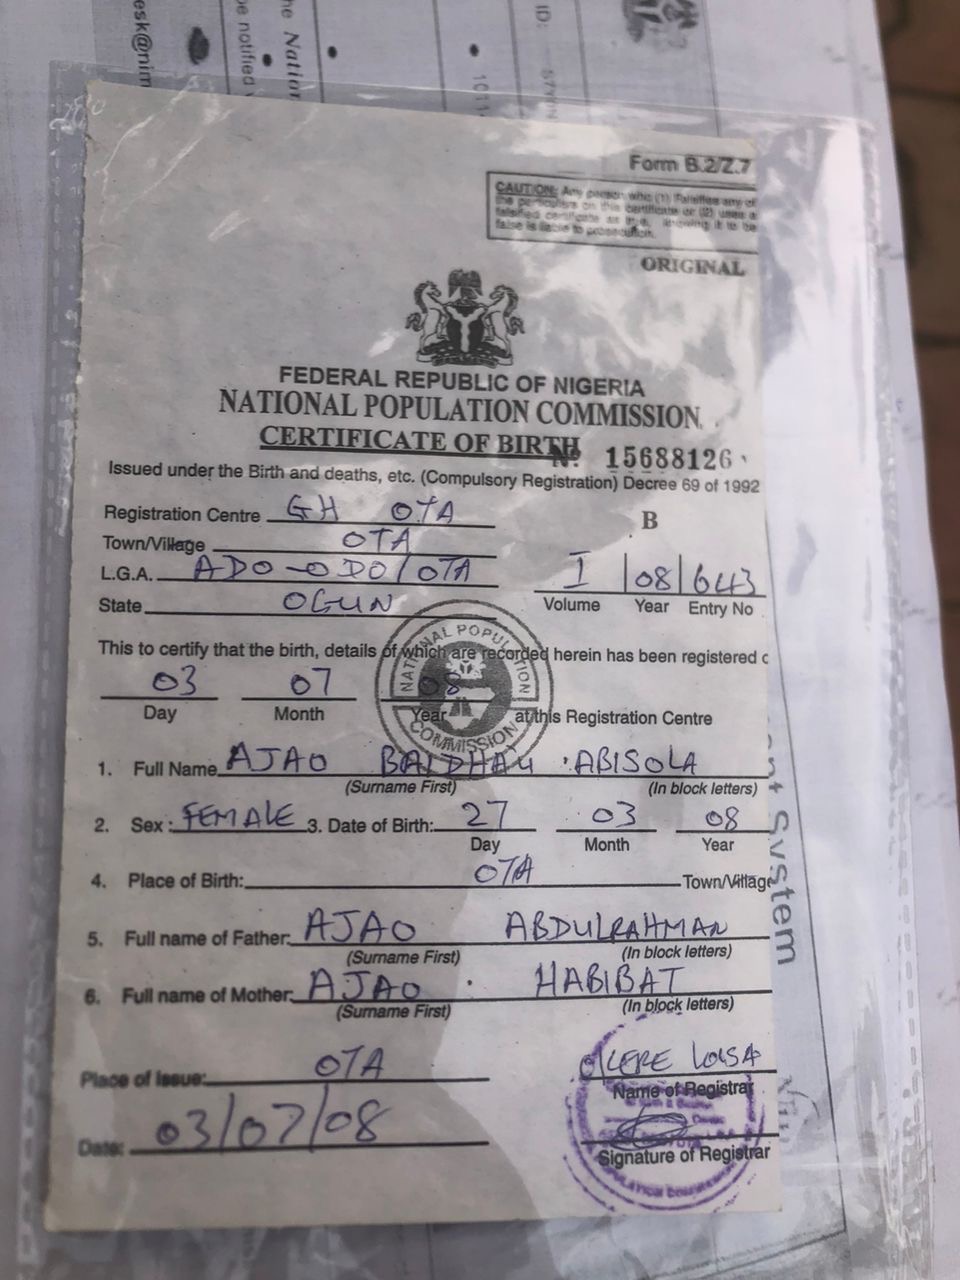 Form B.2/Z.7
CAUTION: Any person who (1) Falsifies any of
the particulars on this certificate or (2) uses a
falsified certificate as knowing it to be
false is liable to prosecution.
ORIGINAL
FEDERAL REPUBLIC OF NIGERIA
NATIONAL POPULATION COMMISSION
CERTIFICATE OF BIRTH
No. 15688126
Issued under the Birth and deaths, etc. (Compulsory Registration) Decree 69 of 1992
Registration Centre GH OTA
B
Town/Village OTA
L.G.A. ADO-ODO/OTA
I 08 643
Volume Year Entry No
State OGUN
This to certify that the birth, details of which are recorded herein has been registered
03 07 08
Day Month Year at this Registration Centre
NATIONAL POPULATION COMMISSION
1. Full Name AJAO ABISOLA
(Surname First) (In block letters)
2. Sex: FEMALE 3. Date of Birth: 27 03 08
Day Month Year
4. Place of Birth: OTA Town/Village
5. Full name of Father: AJAO ABDULRAHMAN
(Surname First) (In block letters)
6. Full name of Mother: AJAO HABIBAT
(Surname First) (In block letters)
Place of Issue: OTA
Name of Registrar
Date: 03/07/08
Signature of Registrar
System